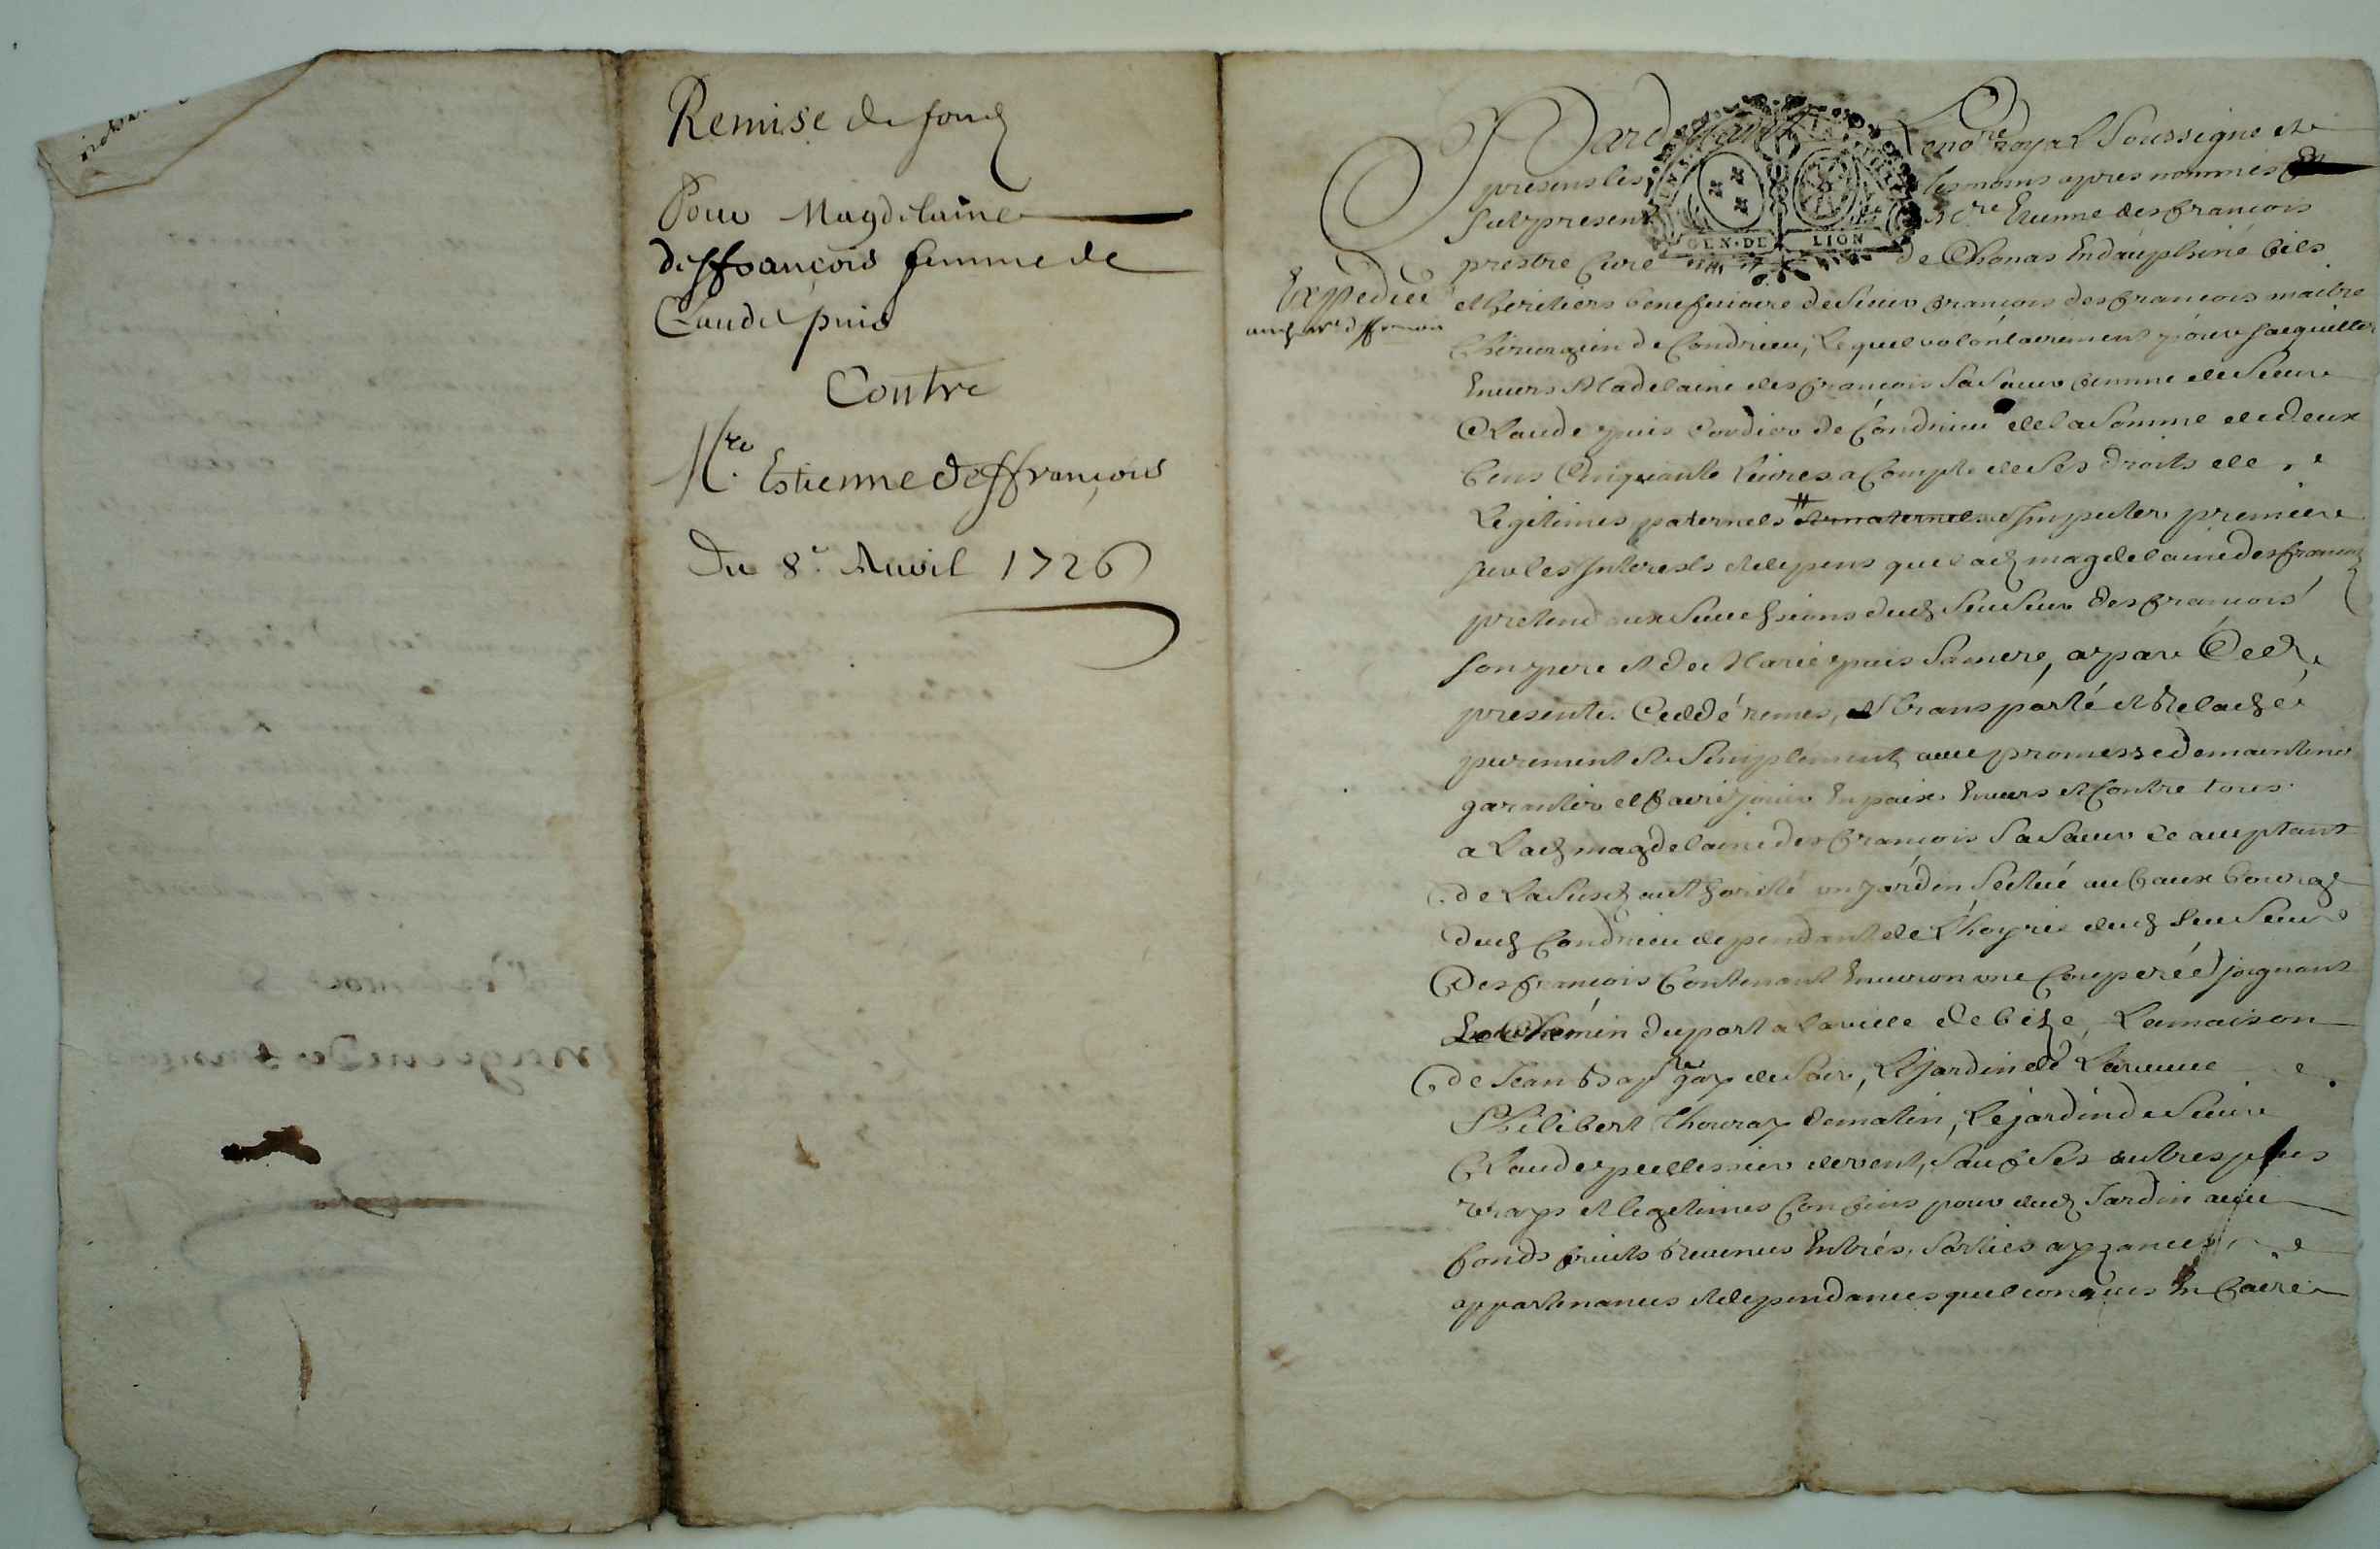 Remise de fondz
Pour Magdelaine
deffrançois femme de
Claude puis
Contre
Mre. Estienne deffrançois
Du 8e. Auvil 1726
Expediee
Pardevant Le nore royal Soussigne et
presens les tesmoins apres nommes
fut present Mre Etienne desfrançois
prestre Curé de Chonas En dauphiné fils
et heritiers beneficiaire de Sieur françois desfrançois maitre
Chirurgien de Condrieu, Lequel volontairement pour sacquitter
Envers Madelaine desfrançois Sa Sœur femme de Sieur
Claude puis Cordier de Condrieu de la Somme de deux
Cens Cinquante Livres a Compte de Ses droits de
Legitimes paternels # et maternels Imputer premiere
sur les Interests et depens que lad magdelaine desfrançois
pretend aux Successions dud feu Sieur desfrançois
son pere et de Marie puis Sa mere, a par Ced
presente Ceddé remis, et transporté et Relaché
purement et Simplement avec promesse de maintenir
garantir et faire jouir En paix Envers et Contre tous
a Lad magdelaine desfrançois Sa Sœur Ce acceptant
de La Susd authorité un jardin Scitué au faux bourg
dud Condrieu dependant de L'hoyrie dud feu Sieur
Desfrançois Contenant Environ une Couperée joignant
Le Chemin du port a la ville de bize, La maison
de Jean Bapte gay de Soir, Le jardin de La veuve
Philibert Thouray de matin, Le jardin de Sieur
Claude pellissier de vent, Sauf Ses autres plus
vrays et legitimes Confins pour dud Jardin avec
fonds fruits Revenus Entrés, Sorties ayzances
appartenances et dependances quelconques En faire